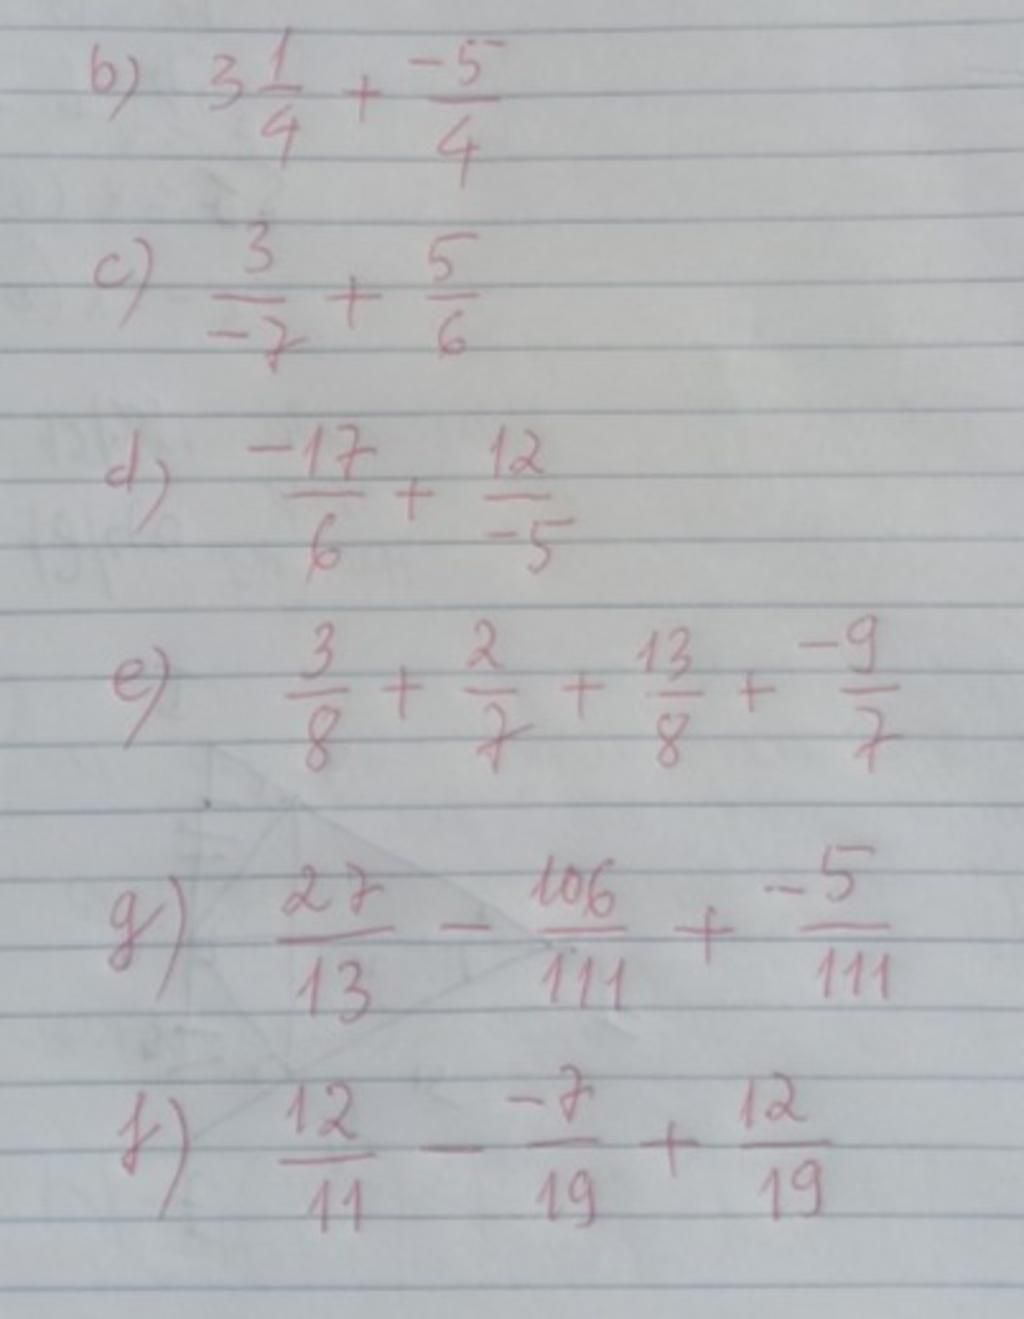 b) 3 1/4 + -5/4
c) 3/-7 + 5/6
d) -17/6 + 12/-5
e) 3/8 + 2/7 + 13/8 + -9/7
g) 27/13 - 106/111 + -5/111
f) 12/11 - -7/19 + 12/19